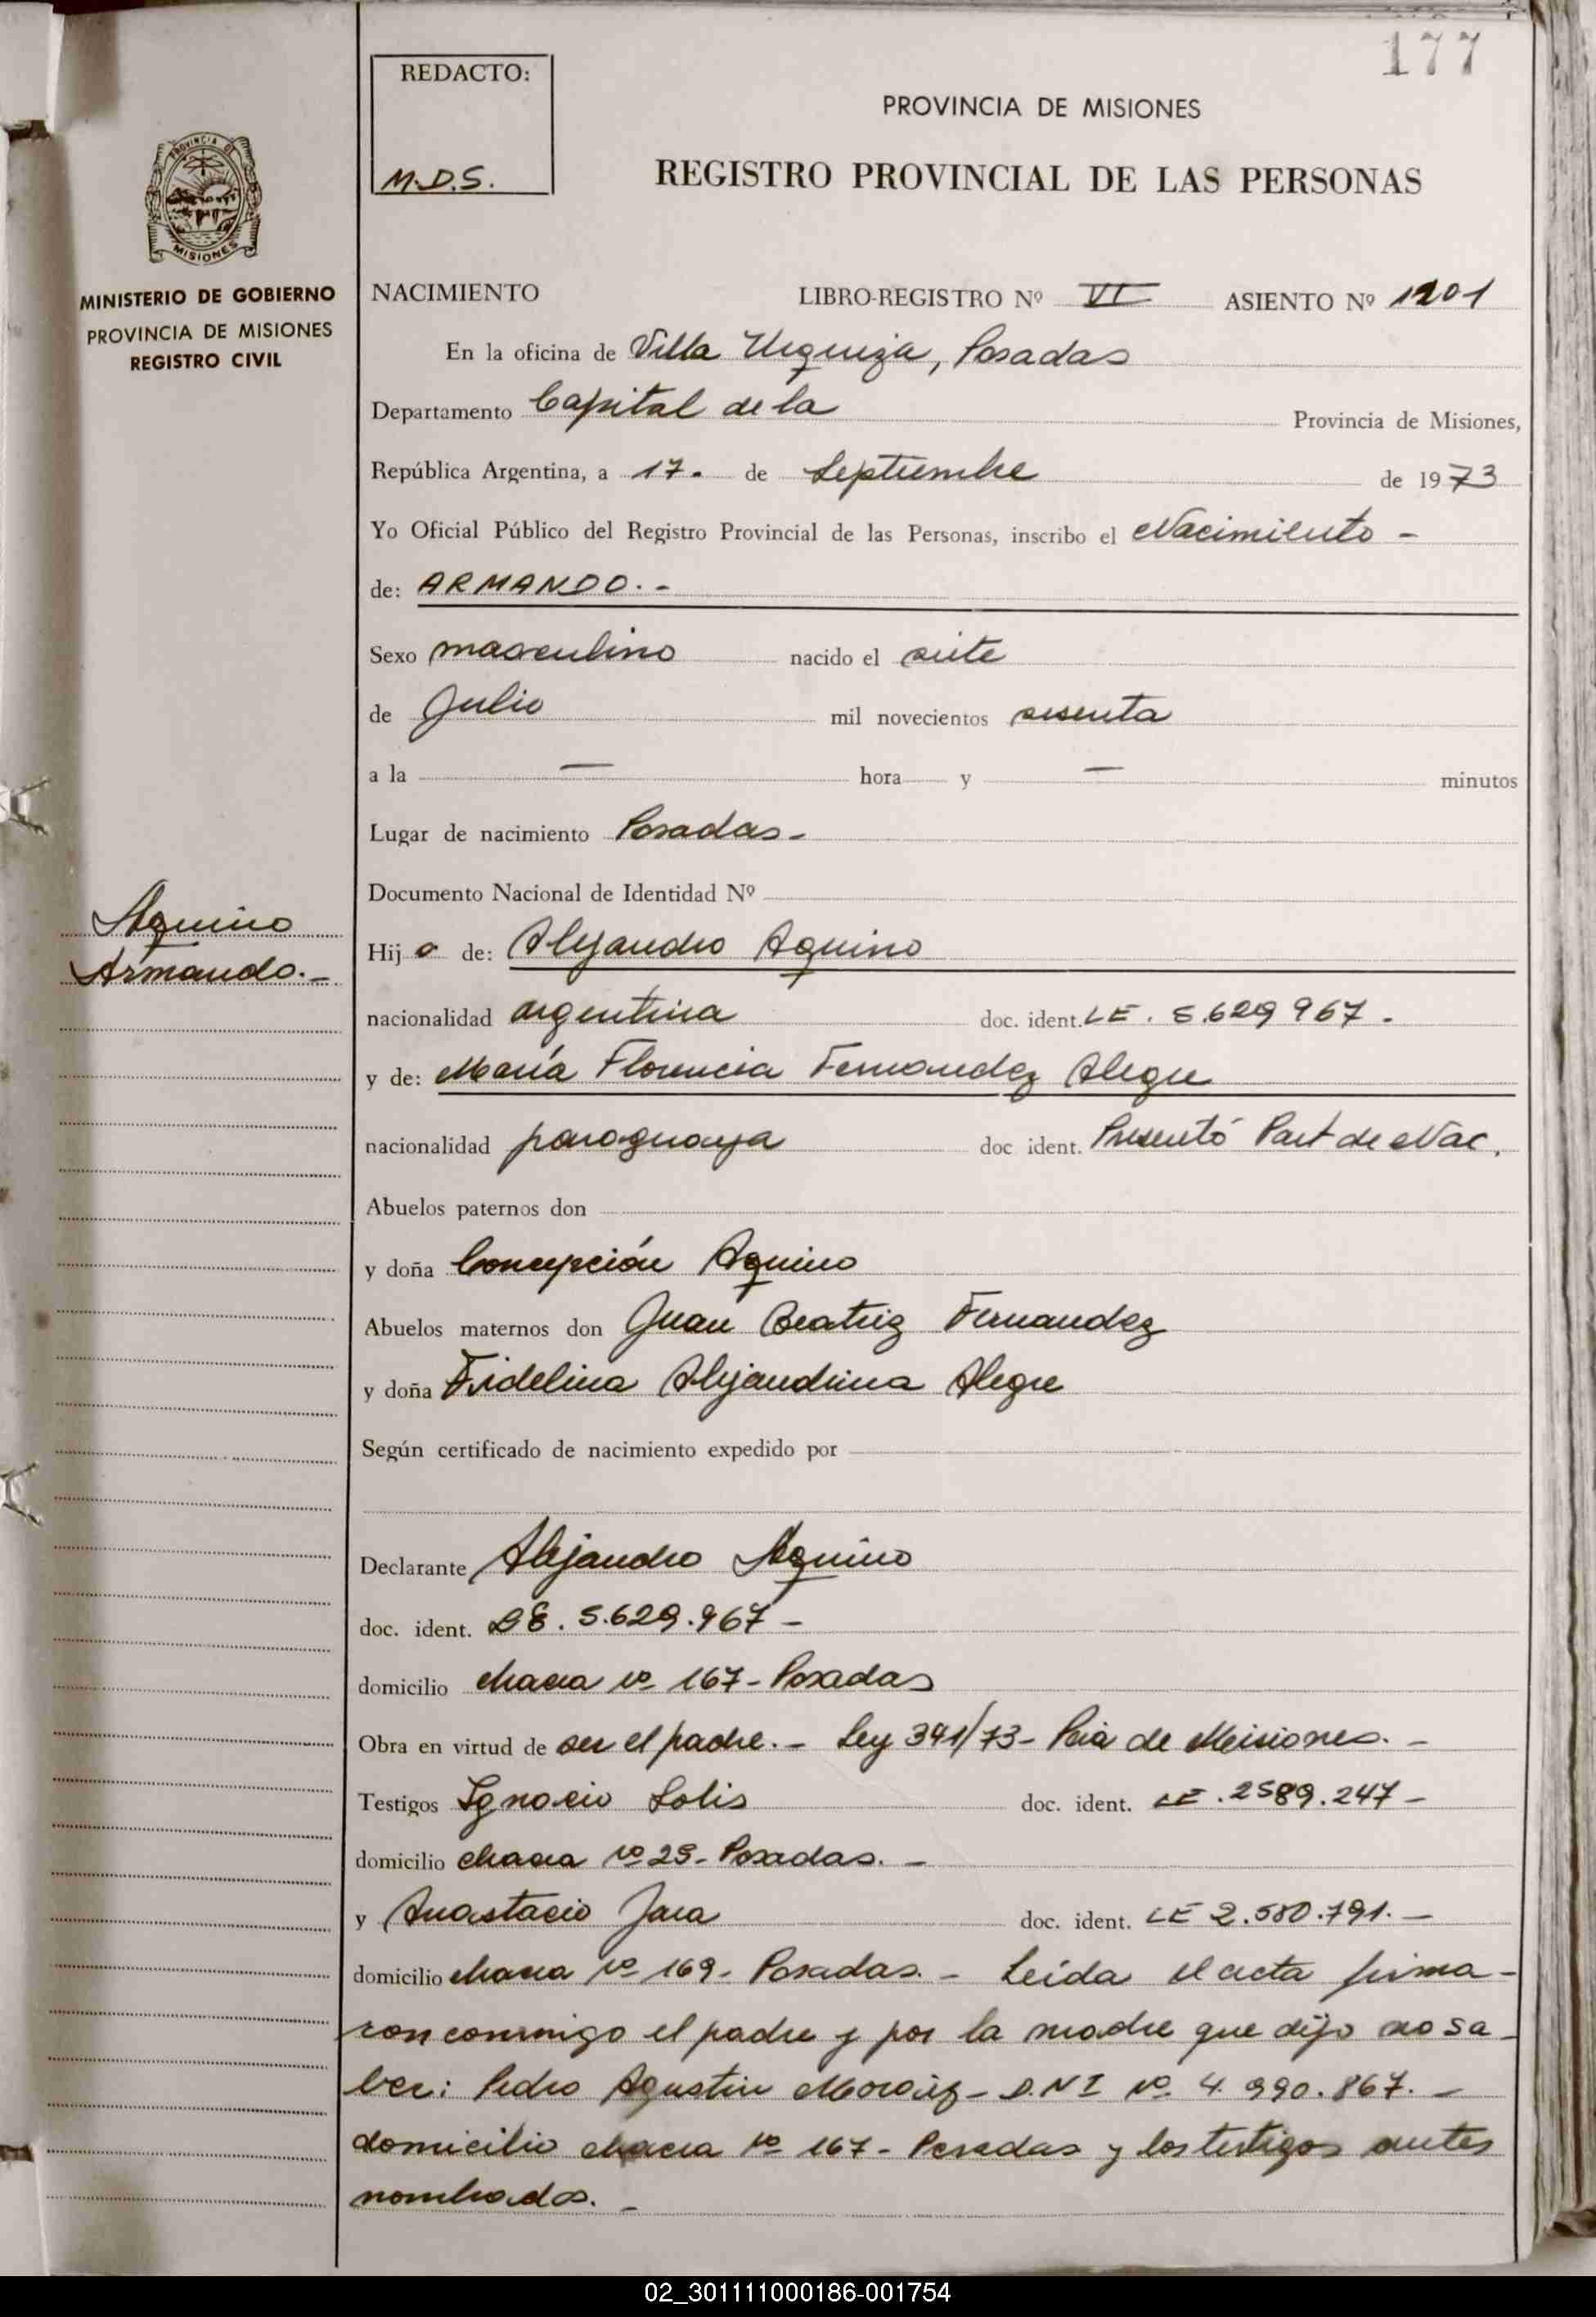 177
REDACTO:
M.D.S.
PROVINCIA DE MISIONES
REGISTRO PROVINCIAL DE LAS PERSONAS
PROVINCIA DE
MISIONES
MINISTERIO DE GOBIERNO
PROVINCIA DE MISIONES
REGISTRO CIVIL
NACIMIENTO LIBRO-REGISTRO Nº VI ASIENTO Nº 1201
En la oficina de Villa Urquiza, Posadas
Departamento Capital de la Provincia de Misiones,
República Argentina, a 17. de Septiembre de 1973
Yo Oficial Público del Registro Provincial de las Personas, inscribo el Nacimiento -
de: ARMANDO. -
Sexo masculino nacido el siete
de Julio mil novecientos sesenta
a la — hora y — minutos
Lugar de nacimiento Posadas -
Documento Nacional de Identidad Nº
Aquino
Armando. -
Hij o de: Alejandro Aquino
nacionalidad argentina doc. ident. LE. 5.629 967 -
y de: María Florencia Fernandez Alegre
nacionalidad paraguaya doc ident. Presentó Part de Nac.
Abuelos paternos don
y doña Concepción Aquino
Abuelos maternos don Juan Beatriz Fernandez
y doña Fidelina Alejandrina Alegre
Según certificado de nacimiento expedido por
Declarante Alejandro Aquino
doc. ident. LE. 5.629.967 -
domicilio chacra nº 167 - Posadas
Obra en virtud de ser el padre. - Ley 341/73 - Pcia de Misiones. -
Testigos Ignacio Solis doc. ident. LE. 2589.247 -
domicilio chacra nº 29 - Posadas. -
y Anastacio Jara doc. ident. LE 2.580.791. -
domicilio chacra nº 169 - Posadas. - Leída el acta firma-
ron conmigo el padre y por la madre que dijo no sa-
ber: Pedro Agustin - D.N I nº 4.990.867. -
domicilio chacra nº 167 - Posadas y los testigos antes
nombrados. -
02_301111000186-001754